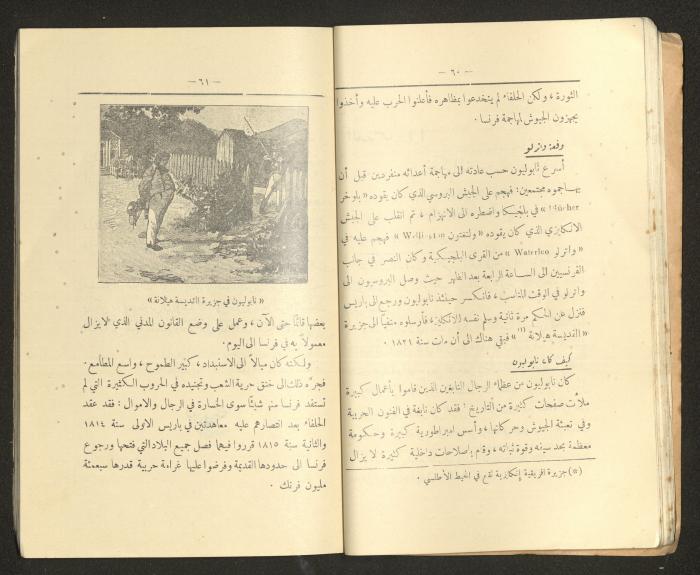 — ٦٠ —
الثورة ، ولكن الحلفاء لم يتخدعوا بمظاهره فأعلنوا الحرب عليه وأخذوا
يجهزون الجيوش لمهاجمة فرنسا .
وقعة واترلو
أسرع نابوليون حسب عادته الى مهاجمة أعدائه منفردين قبل أن
يهاجموه مجتمعين: فهجم على الجيش البروسي الذي كان يقوده « بلوخر
Blücher » في بلجيكا واضطره الى الانهزام ، ثم انقلب على الجيش
الانكليزي الذي كان يقوده « ولنغتون » فهجم عليه في
« واترلو Waterloo » من القرى البلجيكية وكان النصر في جانب
الفرنسيين الى الساعة الرابعة بعد الظهر حيث وصل البروسيون الى
واترلو في الوقت المناسب ، فانكسر حينئذ نابوليون ورجع الى باريس
فنزل عن الحكم مرة ثانية وسلم نفسه للانكليز، فأرسلوه منفياً الى جزيرة
« القديسة هيلانة » (*) فبقي هناك الى أن مات سنة ١٨٢١
كيف كان نابوليون
كان نابوليون من عظماء الرجال النابغين الذين قاموا بأعمال كبيرة
ملأت صفحات كثيرة من التاريخ ! فقد كان نابغة في الفنون الحربية
وفي تعبئة الجيوش وحركاتها ، وأسس امبراطورية كبيرة وحكومة
معظمة بحد سيفه وقوة ثباته ، وقام باصلاحات داخلية كثيرة لا يزال
(*) جزيرة افريقية إنكليزية تقع في المحيط الأطلسي .
— ٦١ —
« نابوليون في جزيرة القديسة هيلانة »
بعضها قائماً حتى الآن ، وعمل على وضع القانون المدني الذي لا يزال
معمولاً به في فرنسا الى اليوم .
ولكنه كان ميالاً الى الاستبداد ، كبير الطموح ، واسع المطامع .
فجره ذلك الى خنق حرية الشعب وتجنيده في الحروب الكثيرة التي لم
تستفد فرنسا منها شيئاً سوى الخسارة في الرجال والاموال : فقد عقد
الحلفاء بعد انتصارهم عليه معاهدتين في باريس الاولى سنة ١٨١٤
والثانية سنة ١٨١٥ قرروا فيهما فصل جميع البلاد التي فتحها ورجوع
فرنسا الى حدودها القديمة وفرضوا عليها غرامة حربية قدرها سبعمئة
مليون فرنك .